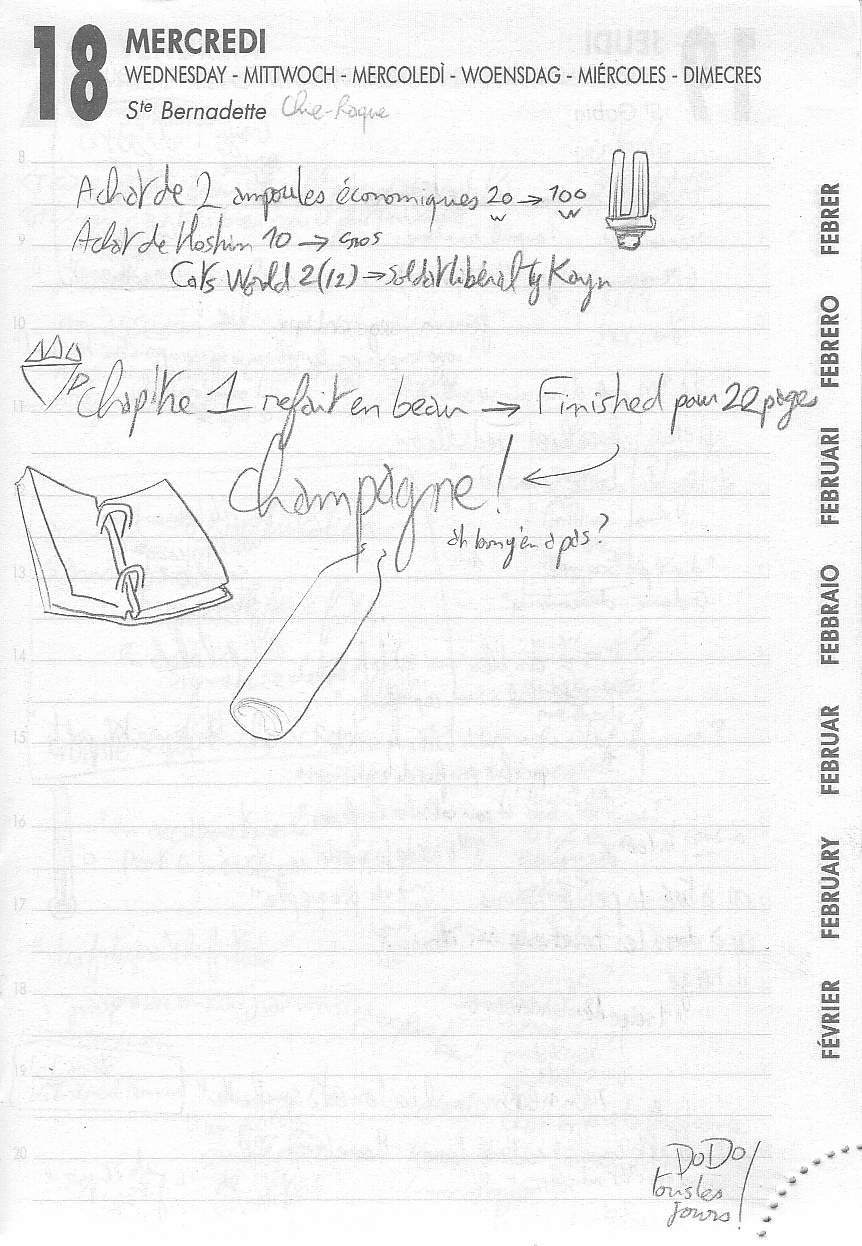 18
MERCREDI
WEDNESDAY - MITTWOCH - MERCOLEDÌ - WOENSDAG - MIÉRCOLES - DIMECRES
Ste Bernadette
8
Achat de 2 ampoules économiques 20 W → 100 W
9
Achat de Hoshin 10 → gros
Cat's World 2 (12) → soldat libéral
10
Chapitre 1 refait en beau → Finished pour 22 pages
11
12
Champagne!
ah bon y'en a pas?
13
14
15
16
17
18
19
20
DoDo
tous les
jours!
FÉVRIER FEBRUARY FEBRUAR FEBBRAIO FEBRUARI FEBRERO FEBRER